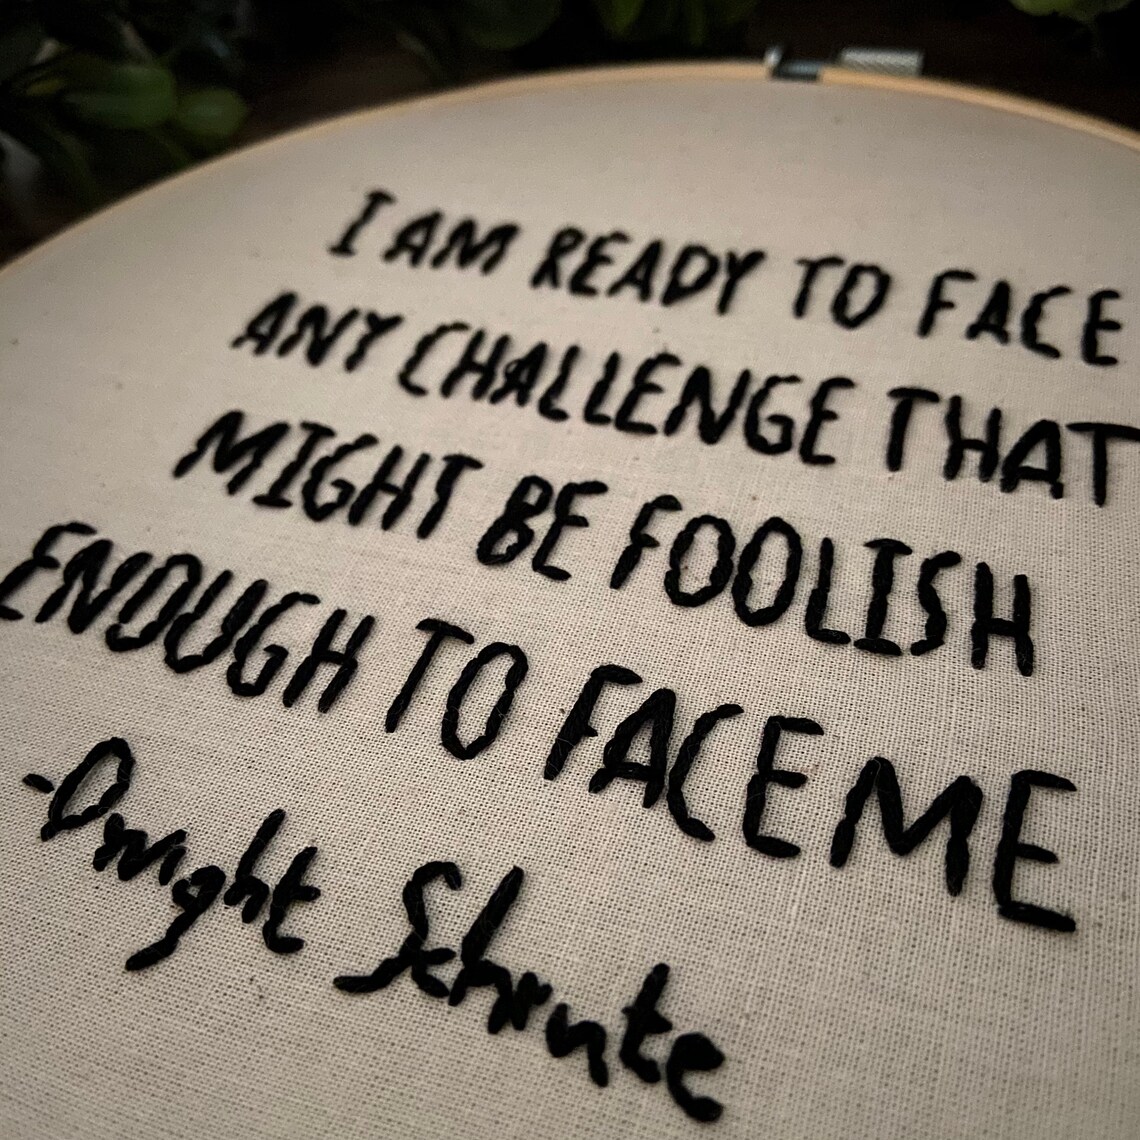 I AM READY TO FACE
ANY CHALLENGE THAT
MIGHT BE FOOLISH
ENOUGH TO FACE ME
-Dwight Schrute